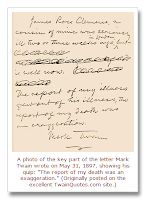 James Ross Clemens, a
cousin of mine was seriously
ill two or three weeks ago, in London, but
is well now.
The report of my illness
grew out of his illness, the
report of my death was
an exaggeration.
Mark Twain
A photo of the key part of the letter Mark
Twain wrote on May 31, 1897, showing his
quip: "The report of my death was an
exaggeration." (Originally posted on the
excellent TwainQuotes.com site.)